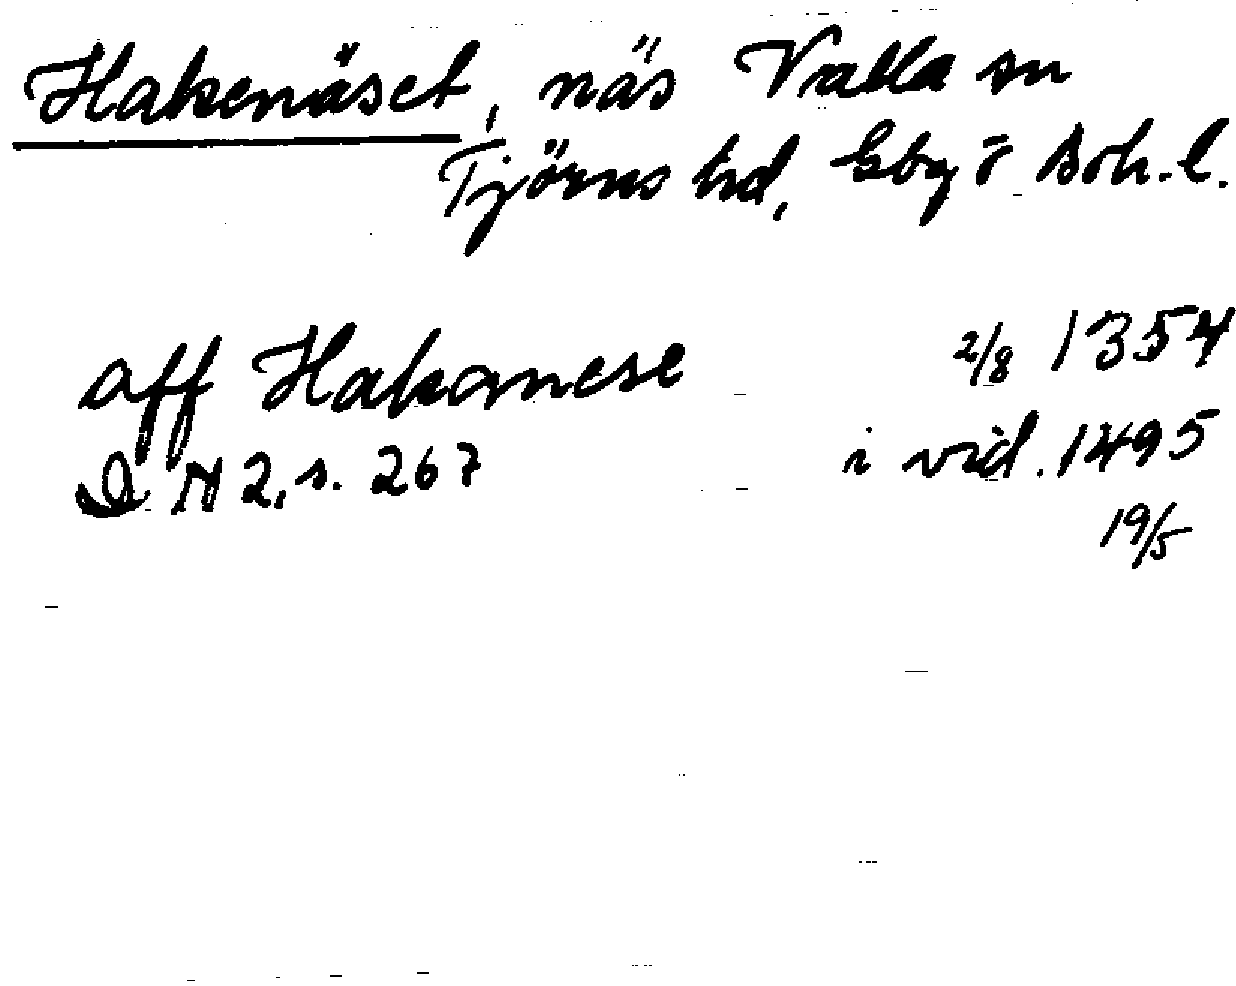 Hakenäset, näs Valla sn
Tjörns hd, Gbg o Boh. l.
aff Hakanese 2/8 1354
D N 2, s. 267 i vid. 1495
19/5